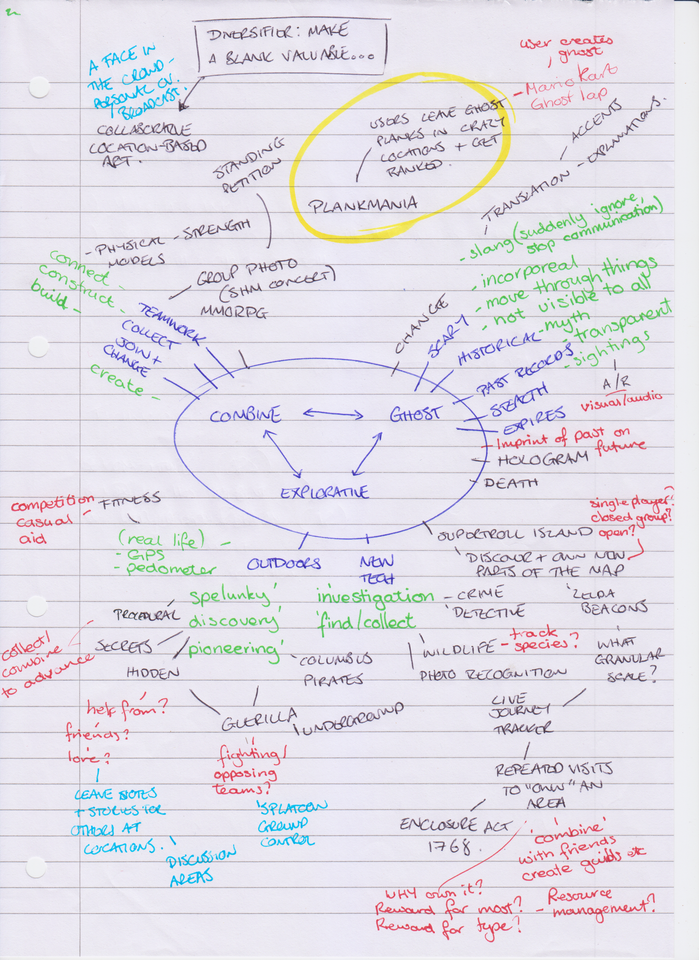 DIVERSIFIER: MAKE
A BLANK VALUABLE...
A FACE IN
THE CROWD -
PERSONAL OV.
BROADCAST.
COLLABORABLE
LOCATION-BASED
ART.
user creates
ghost
- Mario Kart
Ghost lap
USERS LEAVE GHOST
PLANKS IN CRAZY
LOCATIONS + GET
RANKED.
PLANKMANIA
STANDING
PETITION
ACCENTS
TRANSLATION - EXPLANATIONS.
- slang (suddenly ignore,
stop communication)
- PHYSICAL - STRENGTH
MODELS
GROUP PHOTO
(SHM CONCERT)
MMORPG
connect -
construct -
build -
TEAMWORK
COLLECT
JOIN +
CHANGE
create -
CHANGE
SCARY
- incorporeal
- move through things
- not visible to all
HISTORICAL - myth
- transparent
PAST RECORDS - sightings
STEALTH
EXPIRES
A/R
visual/audio
- Imprint of past on
future
HOLOGRAM
DEATH
COMBINE
GHOST
EXPLORATIVE
competition
casual -
aid
FITNESS
(real life) -
- GPS
- pedometer
OUTDOORS
NEW
TECH
single player?
closed group?
open?
OUPORTROLL ISLAND
DISCOVER + OWN NEW
PARTS OF THE MAP
spelunky'
discovery'
pioneering'
investigation
'find/collect
- CRIME
'DETECTIVE
ZELDA
BEACONS
PROCEDURAL
SECRETS
HIDDEN
collect/
combine
to advance
COLUMBUS
PIRATES
WILDLIFE - track
species?
PHOTO RECOGNITION
WHAT
GRANULAR
SCALE?
help from?
friends?
love?
GUERILLA
UNDERGROUND
LIVE
JOURNEY
TRACKER
fighting/
opposing
teams?
REPEATED VISITS
TO "OWN" AN
AREA
LEAVE NOTES
+ STORIES FOR
OTHERS AT
LOCATIONS.
DISCUSSION
AREAS
SPLATOON
GROUND
CONTROL
ENCLOSURE ACT
1768.
'combine'
with friends
create guilds etc
WHY own it?
Reward for most?
Reward for type?
- Resource
management?